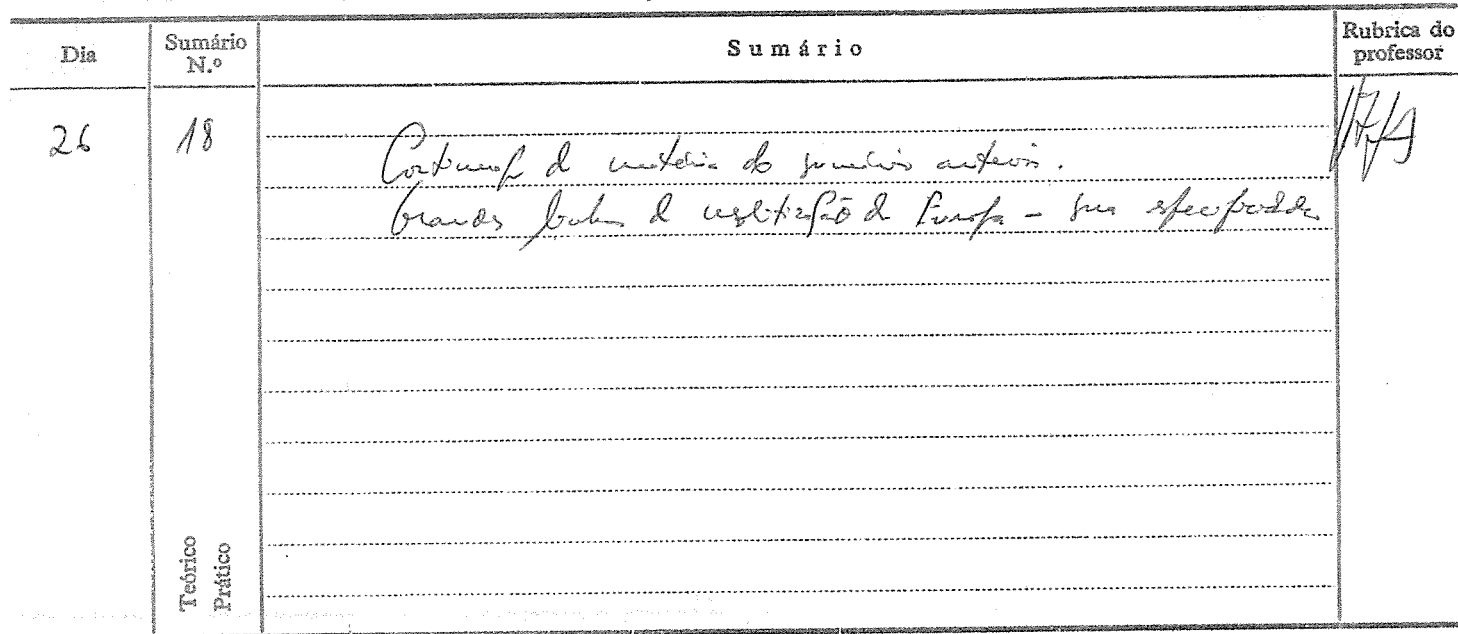 Dia
Sumário N.º
Sumário
Rubrica do professor
26
18
Continuação da matéria do sumário anterior.
Grandes de da Europa - suas
Teórico
Prático